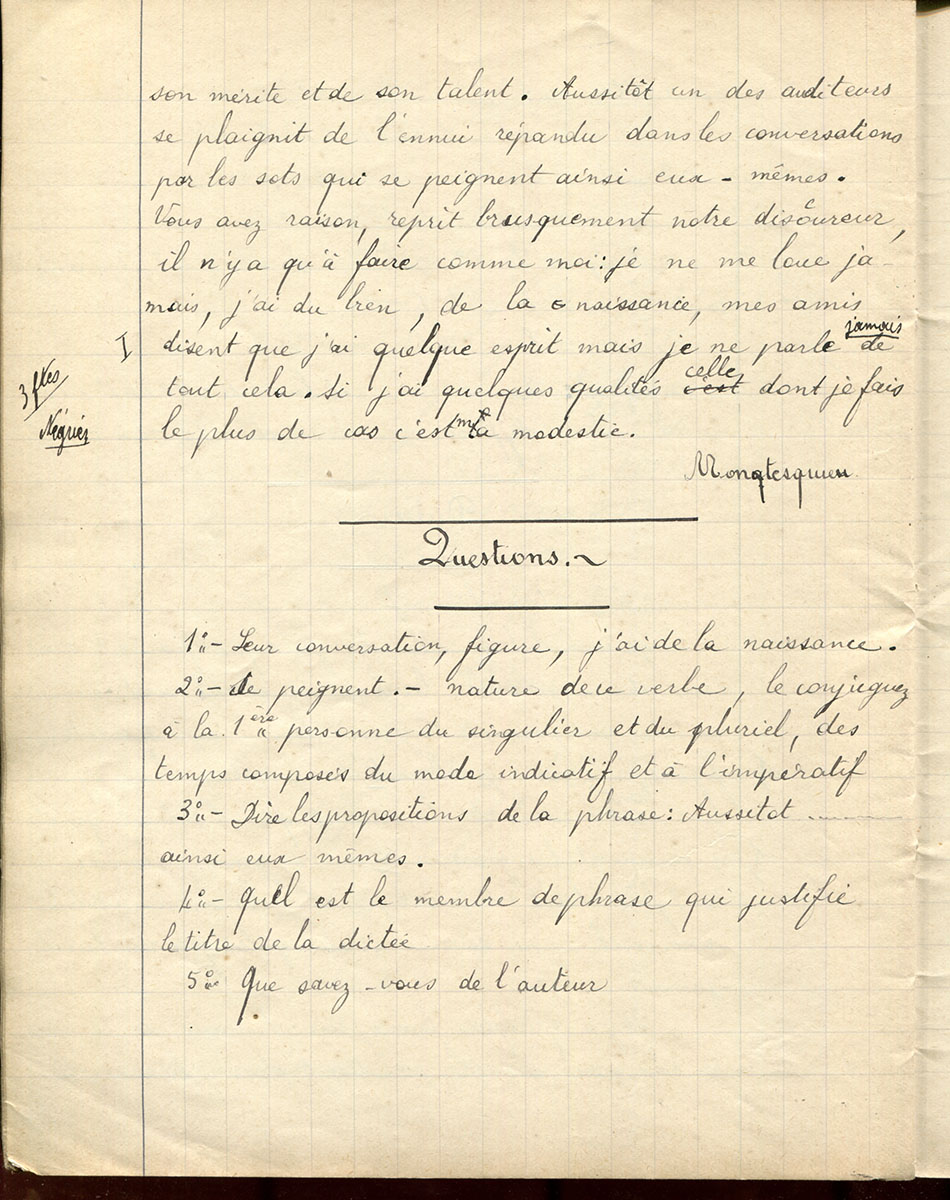 son mérite et de son talent. Aussitôt un des auditeurs
se plaignit de l'ennui répandu dans les conversations
par les sots qui se peignent ainsi eux-mêmes.
Vous avez raison, reprit brusquement notre discoureur,
il n'y a qu'à faire comme moi: je ne me loue ja-
mais, j'ai du bien, de la naissance, mes amis
jamais
I disent que j'ai quelque esprit mais je ne parle de
3 ftes
celle
tout cela. Si j'ai quelques qualités c'est dont je fais
Négriér
le plus de cas c'est ma modestie.
Monqtesquieu
Questions.~
1°- Leur conversation, figure, j'ai de la naissance.
2°- Se peignent.- nature de ce verbe, le conjuguez
à la 1ère personne du singulier et du pluriel, des
temps composés du mode indicatif et à l'impératif
3°- Dire les propositions de la phrase: Aussitot ........
ainsi eux mêmes.
4°- Quel est le membre de phrase qui justifie
le titre de la dictée
5° Que savez-vous de l'auteur